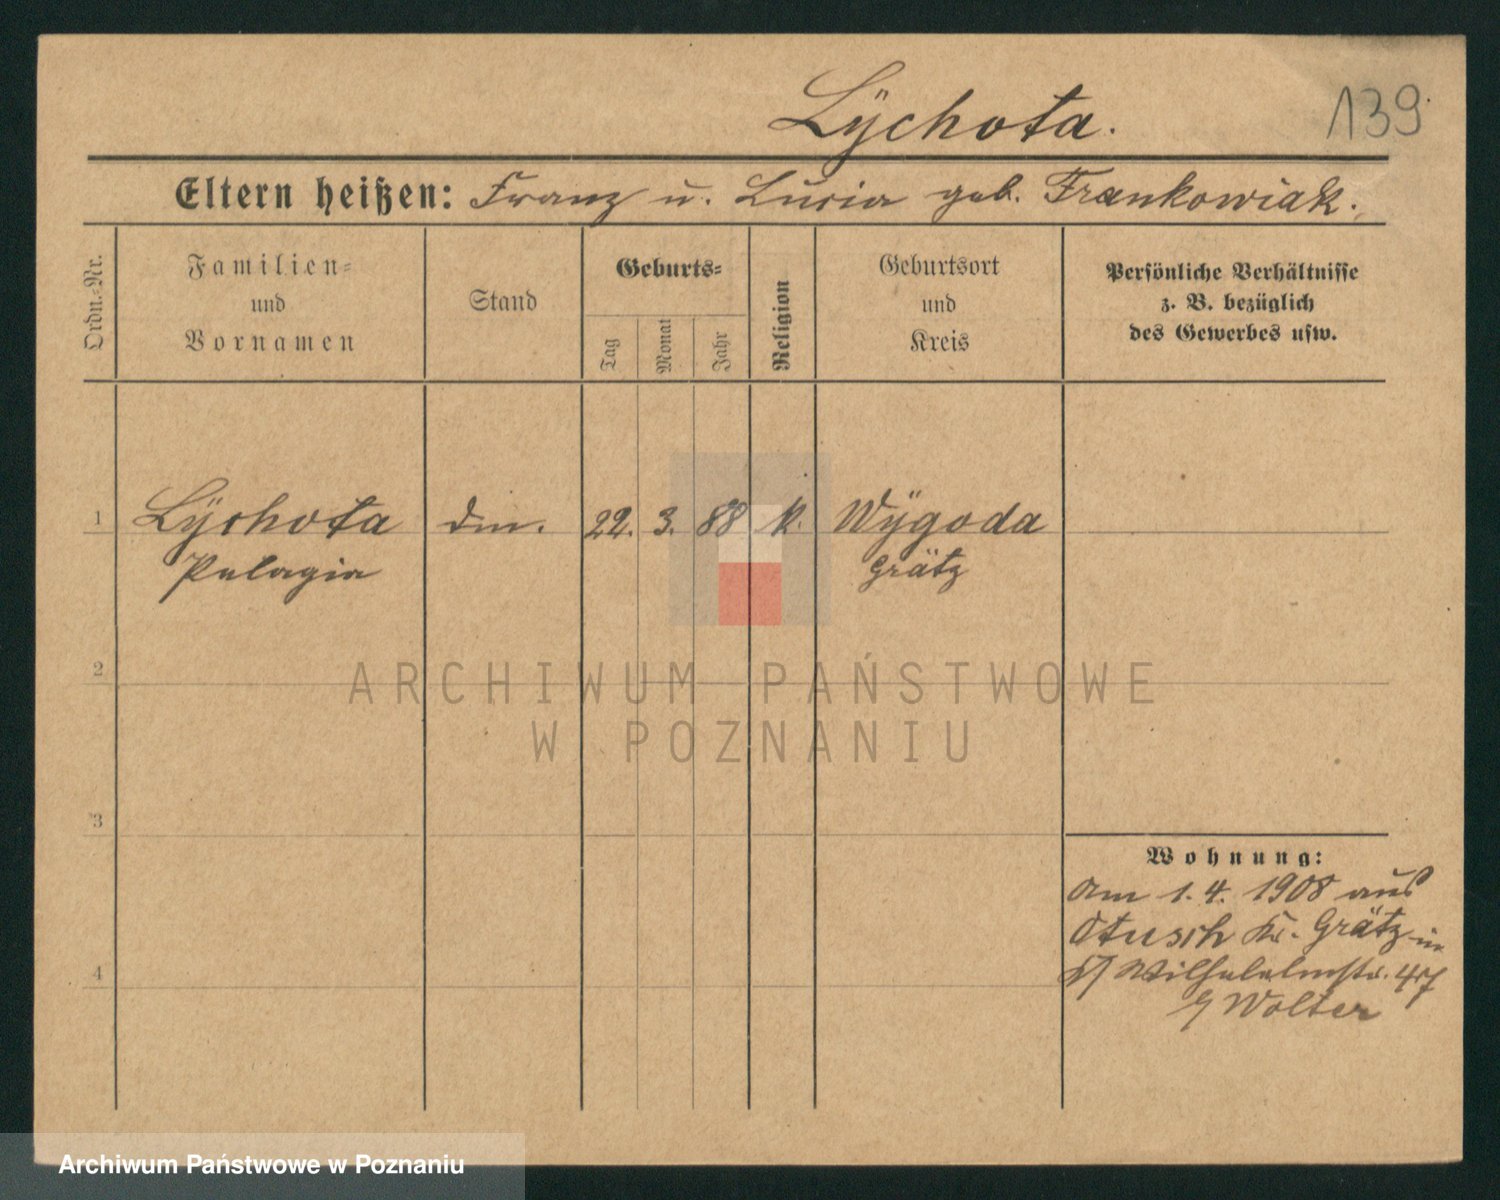 Lÿchota.
139
Eltern heißen: Franz u. Lucia geb. Frankowiak.
Ordn.-Nr.
Familien-
und
Vornamen
Stand
Geburts-
Tag
Monat
Jahr
Religion
Geburtsort
und
Kreis
Persönliche Verhältnisse
z. B. bezüglich
des Gewerbes usw.
1 Lÿchota 22. 3. 88 k. Wÿgoda
Pelagia Grätz
2
ARCHIWUM PAŃSTWOWE
W POZNANIU
3
Wohnung:
Am 1. 4. 1908 aus
Otusch Kr. Grätz in
Wilhelmstr. 47
4
b/ Wolter
Archiwum Państwowe w Poznaniu